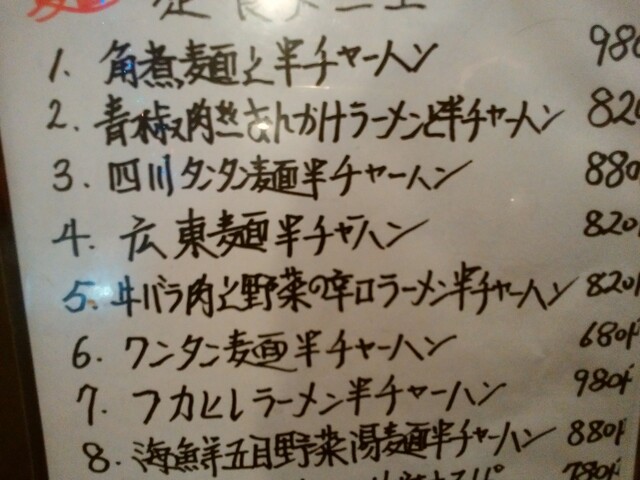 麺 定食メニュー
1. 角煮麺と半チャーハン 980
2. 青椒肉絲あんかけラーメンと半チャーハン 820
3. 四川タンタン麺半チャーハン 880
4. 広東麺半チャーハン 820円
5. 牛バラ肉と野菜の辛口ラーメン半チャーハン 820円
6. ワンタン麺半チャーハン 680円
7. フカヒレラーメン半チャーハン 980円
8. 海鮮五目野菜湯麺半チャーハン 880円
780円